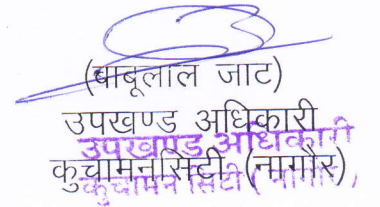 (बाबूलाल जाट)
उपखण्ड अधिकारी
उपखण्ड अधिकारी
कुचामनसिटी (नागौर)
कुचामन सिटी (नागौर)